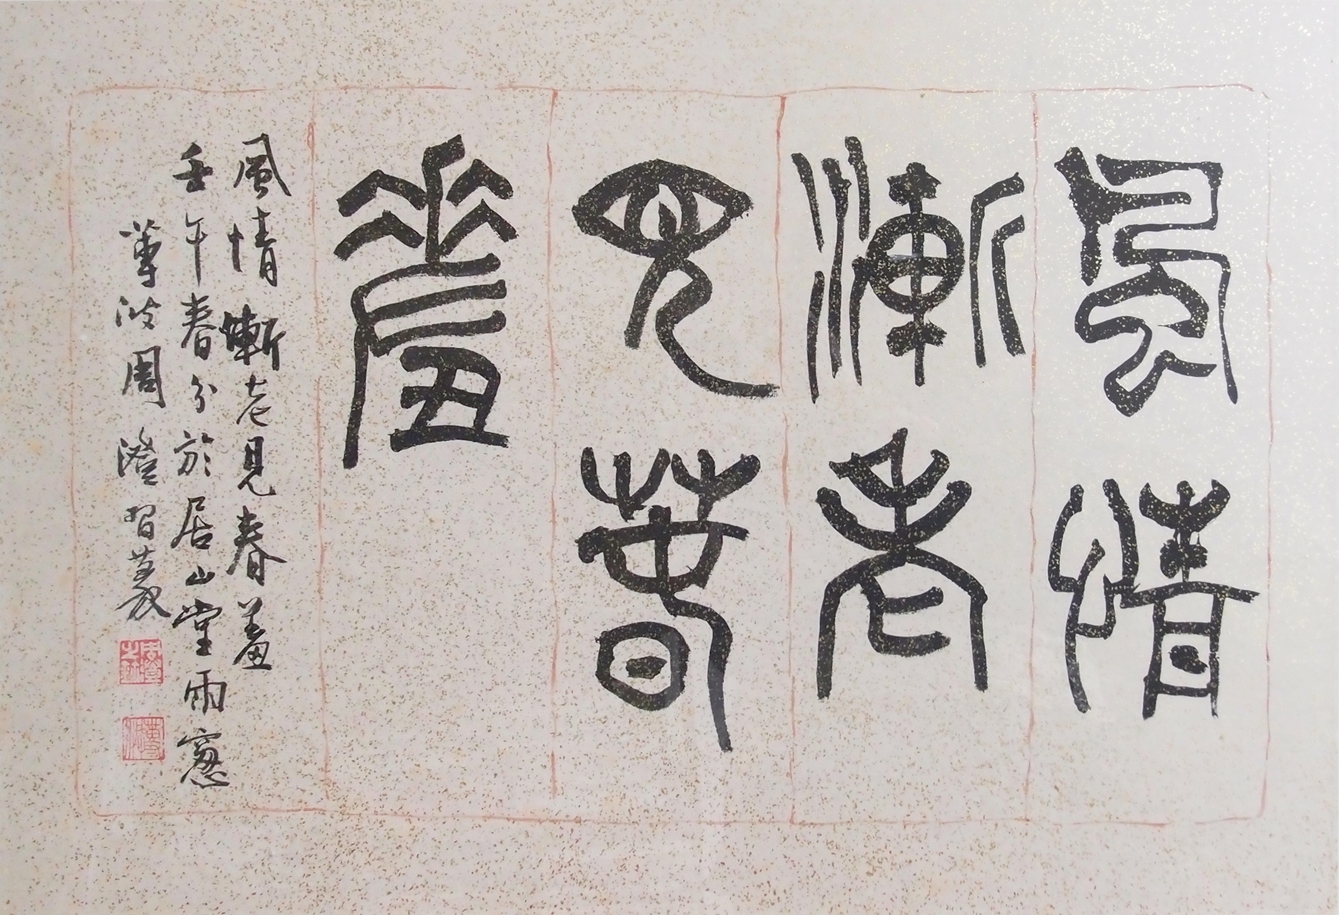 風情
漸老
見春
羞
風情漸老見春羞
壬午春分於居山堂雨窻
蓴波周澄習篆